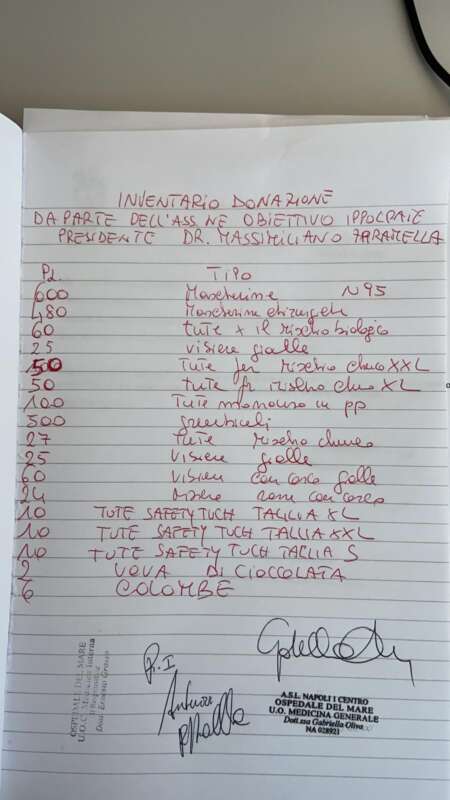 INVENTARIO DONAZIONE
DA PARTE DELL'ASS.NE OBIETTIVO IPPOCRATE
PRESIDENTE DR. MASSIMILIANO ZARAMELLA
Pz. TIPO
600 Mascherine N95
480 Mascherine chirurgiche
60 tute x il rischio biologico
25 visiere gialle
50 Tute per rischio chimico XXL
50 tute per rischio chim XL
100 Tute monouso in pp
500 guanti
27 Tute rischio chimico
25 Visiere gialle
60 Visiere con casco gialle
24 con casco
10 TUTE SAFETY TUCH TAGLIA XL
10 TUTE SAFETY TUCH TALLIA XXL
10 TUTE SAFETY TUCH TAGLIA S
2 UOVA DI CIOCCOLATA
6 COLOMBE
OSPEDALE DEL MARE
U.O.C. Medicina Interna
P.I.
A.S.L. NAPOLI 1 CENTRO
OSPEDALE DEL MARE
U.O. MEDICINA GENERALE
Dott.ssa Gabriella Oliva
NA 028921